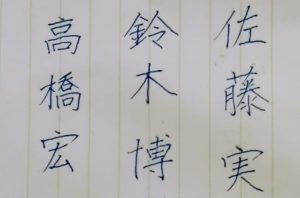 佐藤実
鈴木博
高橋宏